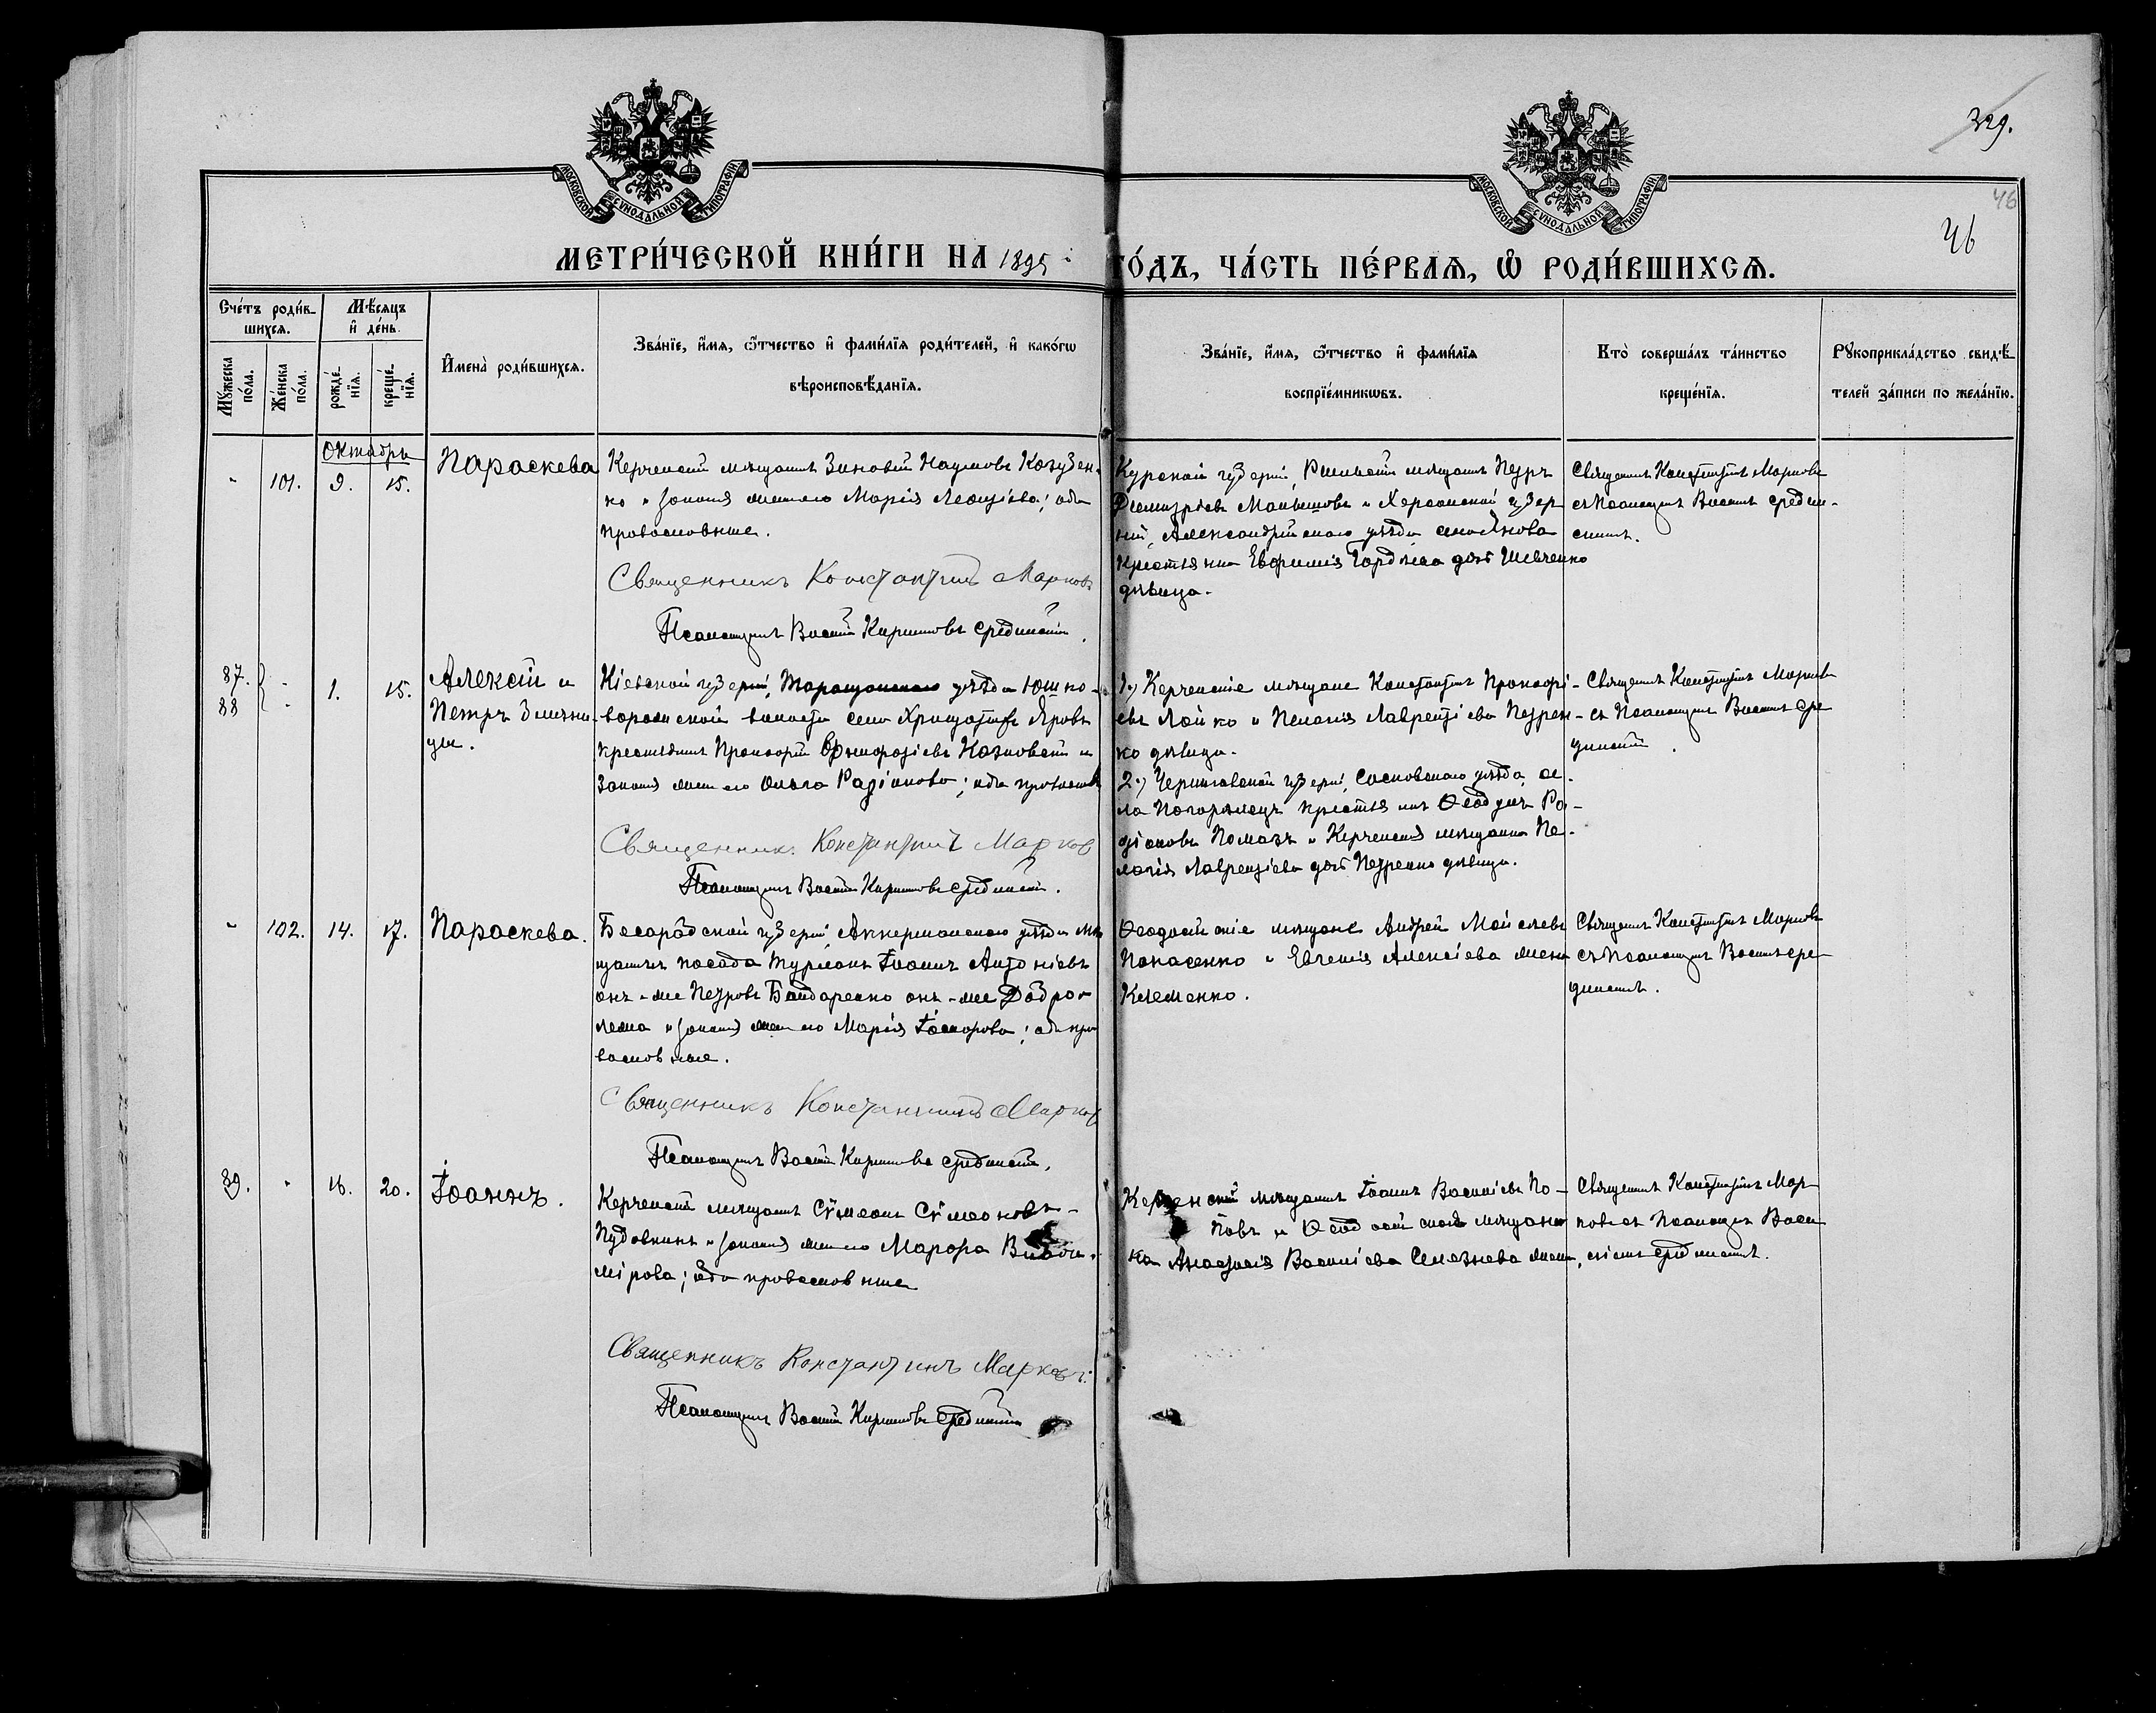 329.
46
46
МОСКОВСКОЙ СѴНОДАЛЬНОЙ ТИПОГРАФІИ
МОСКОВСКОЙ СѴНОДАЛЬНОЙ ТИПОГРАФІИ
МЕТРИ́ЧЕСКОЙ КНИ́ГИ НА 1895 ГО́ДЪ, ЧА́СТЬ ПЕ́РВАѦ, Ѡ РОДИ́ВШИХСѦ.
Сче́тъ роди́в-
шихсѧ.
Мѣ́сѧцъ
и де́нь.
Мꙋжеска
по́ла.
Же́нска
по́ла.
рожде́-
нїѧ.
креще́-
нїѧ.
Имена̀ роди́вшихсѧ.
Зва́нїе, и́мѧ, ѻ́тчество и фами́лїѧ роди́телей, и како́гѡ
вѣроисповѣ́данїѧ.
Зва́нїе, и́мѧ, ѻ́тчество и фами́лїѧ
воспрїе́мникѡвъ.
Кто̀ соверша́лъ та́инство
креще́нїѧ.
Рꙋкоприкла́дство свидѣ́-
телей за́писи по жела́нїю.
Октябрь
" 101. 9. 15. Параскева
Керченскій мѣщанинъ Зиновій Наумовъ Козузен-
ко и законная жена его Марія Леонтіева; оба
православные.
Священникъ Константинъ Марковъ
Псаломщикъ Василій Кирилловъ Срединскій.
Курской губерніи, Рыльскій мѣщанинъ Петръ
Димитріевъ и Херсонской губер
ніи, Александрійскаго уѣзда села
крестьянка Евфимія Гордѣева дочь Шевченко
дѣвица.
Священникъ Константинъ Марковъ
съ псаломщик. Василіемъ Средин-
скимъ.
87.
88 " 1. 15. Алексій и
Петръ близне-
цы.
Кіевской губерніи, Таращанскаго уѣзда Юшко-
ворожской волости села Христофоръ Яровъ
крестьянинъ Прокофій Козловскій и
законная жена его Ольга Радіонова; оба православ
Священник. Константинъ Марков
Псаломщикъ Василій Кирилловъ Срединскій.
1.) Керченскіе мѣщане Константинъ Прокофі-
евъ Лойко и Пелагія Лаврентіева Петрен-
ко дѣвица.
2.) Черниговской губерніи, Сосновскаго уѣзда се-
ла Погорѣлецъ крестьянинъ Ѳеодулъ Ро-
діоновъ Помазъ и Керченская мѣщанка Пе-
лагія Лаврентіева дочь Петренко дѣвица.
Священникъ Константинъ Марковъ
съ псаломщик. Василіемъ Сре
динскій.
" 102. 14. 17. Параскева.
Бесарабской губерніи, Аккерманскаго уѣзда мѣ
щанинъ посада Турлаки Іоаннъ Антоніевъ
онъ-же Петровъ Бондаренко онъ-же Добро-
лежа и законная жена его Марія Іосифова; оба пра
вославные.
Священникъ Константинъ Марков
Псаломщикъ Василій Кирилловъ Срединскій.
Ѳеодосійскіе мѣщане Андрей Моисеевъ
Панасенко и Евгенія Алексіева жена
Клеменко.
Священникъ Константинъ Марковъ
съ псаломщик. Василіемъ Сре
динскимъ.
89. " 16. 20. Іоаннъ.
Керченскій мѣщанинъ Сѵмеонъ Сѵмеоновъ
Пудовкинъ и законная жена его Марѳа Влади-
мірова; оба православные
Священникъ Константинъ Марковъ.
Псаломщикъ Василій Кирилловъ Срединскій
Керченскій мѣщанинъ Іоаннъ Василіевъ По-
повъ и Ѳеодосійская мѣщан
ка Анастасія Василіева Селезнева жена.
Священникъ Константинъ Мар
ковъ съ псаломщик. Васи
ліемъ Срединскимъ.